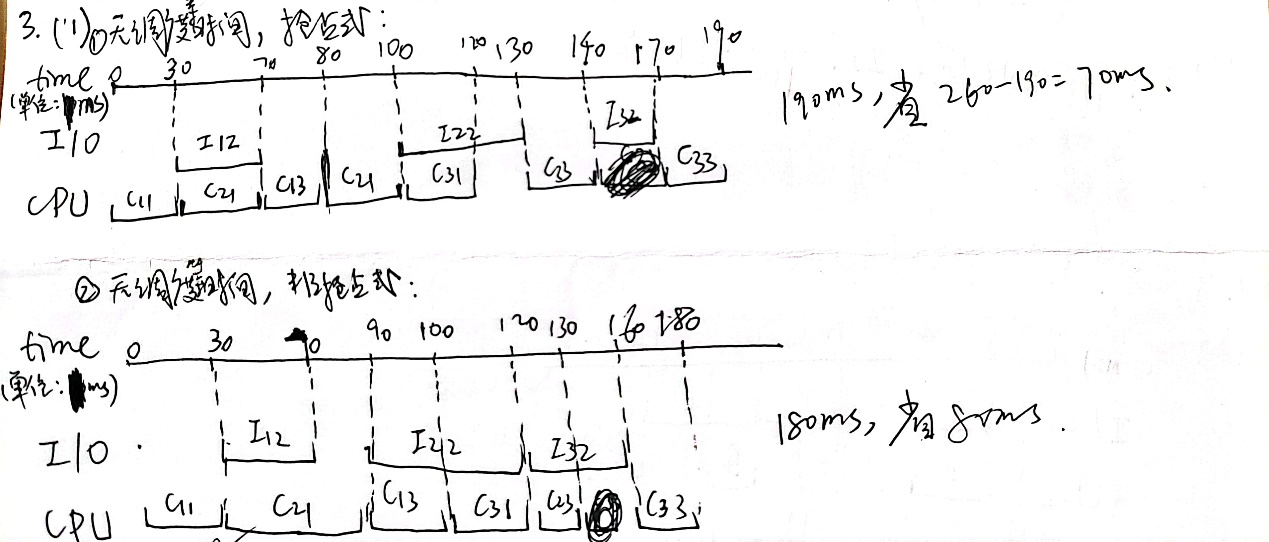 3. (1) ①无调度时间, 抢占式:
time 0 30 70 80 100 120 130 140 170 190
(单位: ms)
I/O I12 I22 I32
CPU C11 C21 C13 C21 C31 C33 C33
190ms, 省 260-190=70ms.
② 无调度时间, 非抢占式:
time 0 30 70 90 100 120 130 160 180
(单位: ms)
I/O I12 I22 I32
CPU C11 C21 C13 C31 C23 C33
180ms, 省80ms.